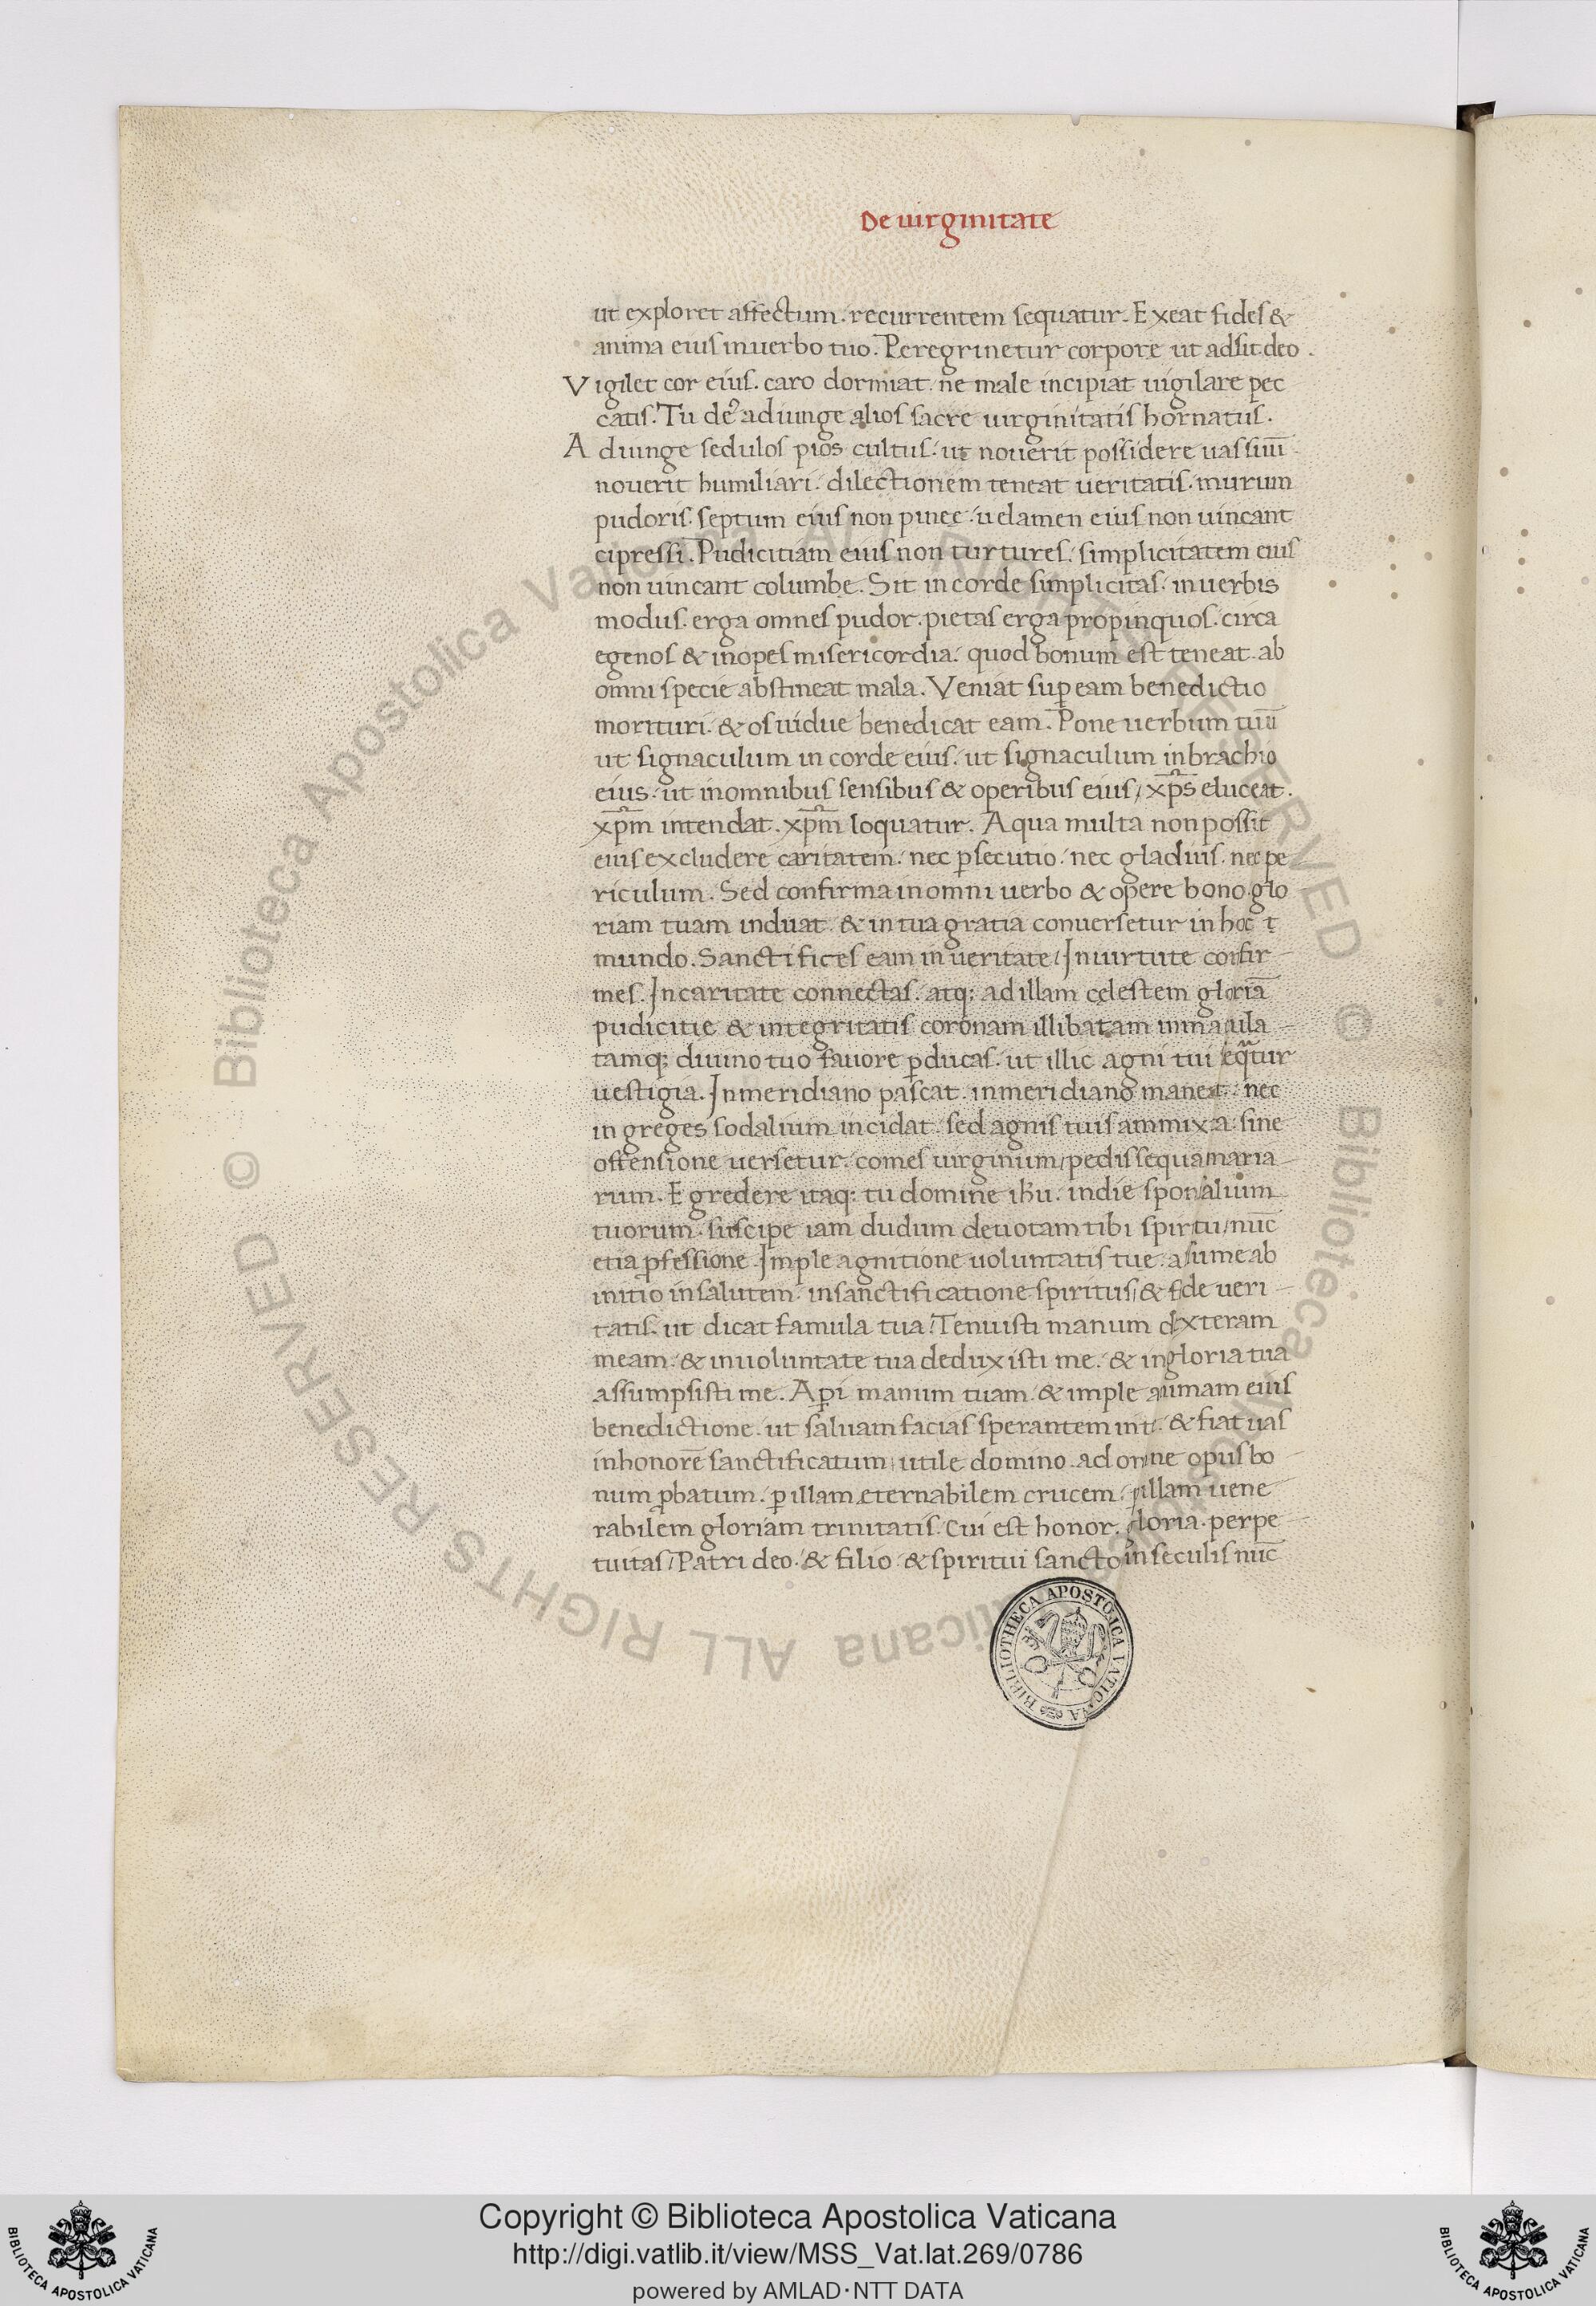 De uirginitate
ut exploret affectum. recurrentem sequatur. Exeat fides &
anima eius in uerbo tuo. Peregrinetur corpore ut adsit deo.
Vigilet cor eius. caro dormiat. ne male incipiat uigilare pec
catis. Tu dn̄e adiunge alios sacre uirginitatis hornatus.
Adiunge sedulos pios cultus. ut nouerit possidere uas suū
nouerit humiliari. dilectionem teneat ueritatis. murum
pudoris. septum eius non pinee. uelamen eius non uincant
cipressi. Pudicitiam eius non turtures. simplicitatem eius
non uincant columbe. Sit in corde simplicitas. in uerbis
modus. erga omnes pudor. pietas erga propinquos. circa
egenos & inopes misericordia. quod bonum est teneat. ab
omni specie abstineat mala. Veniat sup̄ eam benedictio
morituri. & os uidue benedicat eam. Pone uerbum tuū
ut signaculum in corde eius. ut signaculum in brachio
eius. ut in omnibus sensibus & operibus eius/ xp̄s eluceat.
xp̄m intendat. xp̄m loquatur. Aqua multa non possit
eius excludere caritatem. nec p̱secutio. nec gladius. nec pe
riculum. Sed confirma in omni uerbo & opere bono. glo
riam tuam induat. & in tua gratia conuersetur in hoc
mundo. Sanctifices eam in ueritate/ In uirtute confir
mes. In caritate connectas. atq; ad illam celestem gloriā
pudicitie & integritatis coronam illibatam inmacula
tamq; diuino tuo fauore p̱ducas. ut illic agni tui seq̄tur
uestigia. In meridiano pascat. in meridiano maneat. nec
in greges sodalium incidat. sed agnis tuis ammixta. sine
offensione uersetur. comes uirginum/ pedissequa maria
rum. Egredere itaq; tu domine ih̄u. in die sponsalium
tuorum. suscipe iam dudum deuotam tibi spiritu/ nūc
etiā p̱fessione. Imple agnitione uoluntatis tue. assume ab
initio in salutem. in sanctificatione spiritus/ & fide ueri
tatis. ut dicat famula tua/ Tenuisti manum dexteram
meam. & in uoluntate tua deduxisti me. & in gloria tua
assumpsisti me. Ap̱i manum tuam. & imple animam eius
benedictione. ut saluam facias sperantem in te. & fiat uas
in honorē sanctificatum/ utile domino. ad omne opus bo
num p̱batum. p̱ illam eternabilem crucem. p̱ illam uene
rabilem gloriam trinitatis. Cui est honor. gloria. perpe
tuitas/ Patri deo. & filio. & spiritui sancto in seculis nūc
BIBLIOTHECA APOSTOLICA VATICANA
© Biblioteca Apostolica Vaticana ALL RIGHTS RESERVED © Biblioteca Apostolica Vaticana ALL RIGHTS RESERVED
Copyright © Biblioteca Apostolica Vaticana
http://digi.vatlib.it/view/MSS_Vat.lat.269/0786
powered by AMLAD·NTT DATA
BIBLIOTECA APOSTOLICA VATICANA
BIBLIOTECA APOSTOLICA VATICANA